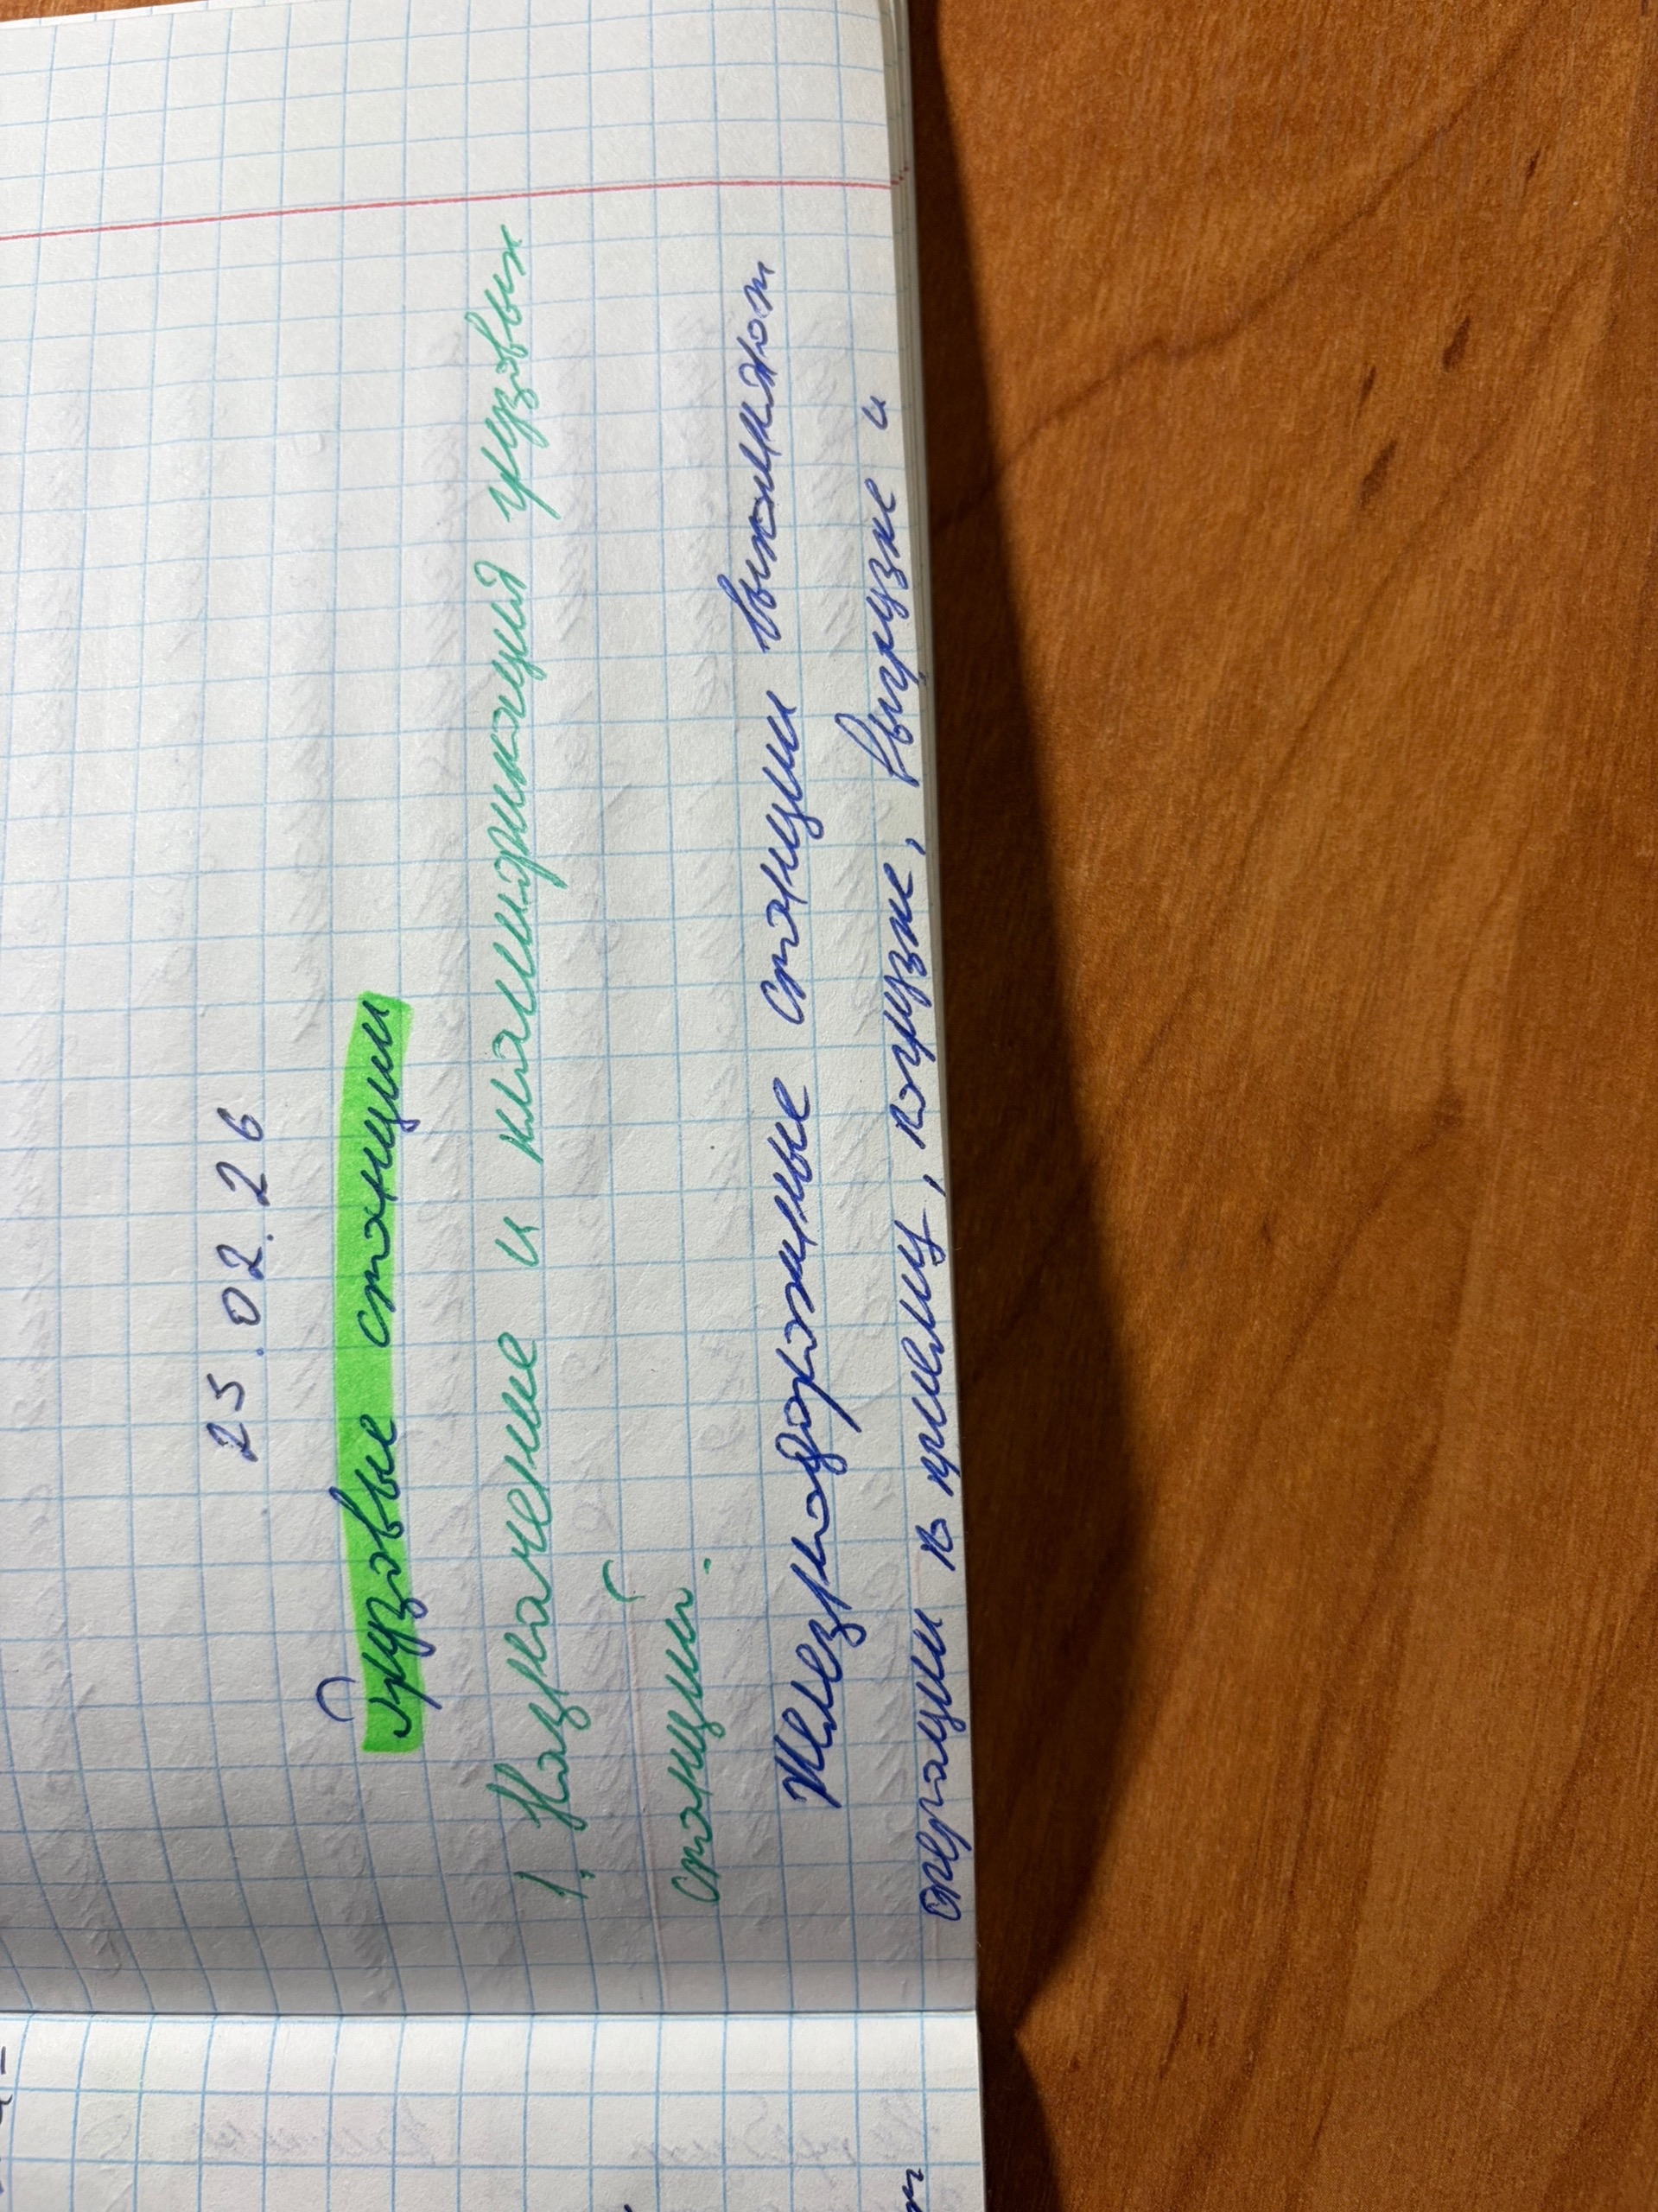 25.02.26
Грузовые станции
1. Назначение и классификация грузовых
станций.
Железнодорожные станции выполняют
операции по приему, погрузке, выгрузке и